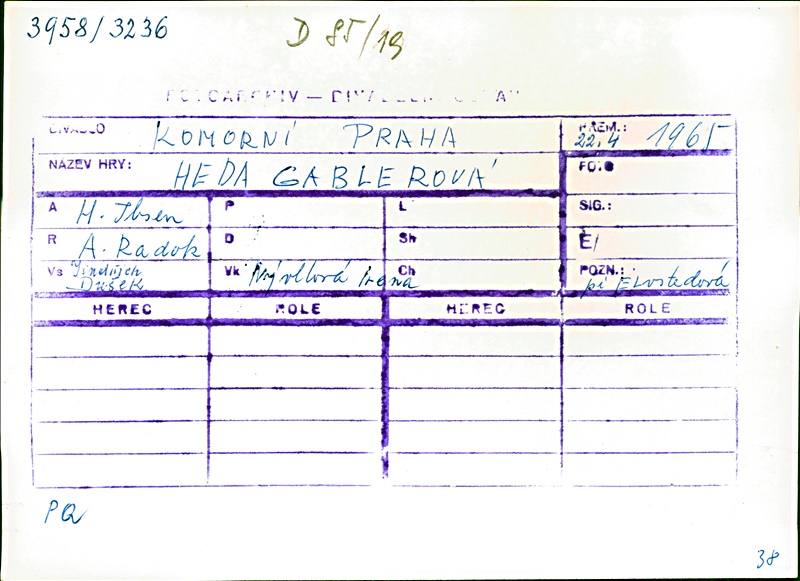 3958/3236
D 85/19
FOTOARCHIV — DIVADELNÍ ÚSTAV
DIVADLO KOMORNÍ PRAHA PREM.: 22.4 1965
NÁZEV HRY: HEDA GABLEROVÁ FOTO
A H. Ibsen P L SIG.:
R A. Radok D Sh Č/
Vs Jindřich Dušek Vk Nývltová Irena Ch POZN.: pí Elvstedová
HEREC ROLE HEREC ROLE
PQ
38